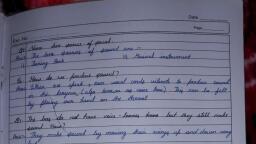 Date
Page
Q: Name two sources of sound.
Ans: The two sources of sound are -
i) Tuning fork ii) Musical instrument
Q: How do we produce sound?
Ans: When we speak, our vocal cords
in the larynx, (also known as voice box). They can be felt
by placing our hand on the throat
Q: The bees do not have voice-boxes how they still make
sound
Ans: They make sound by moving their wings up and down very